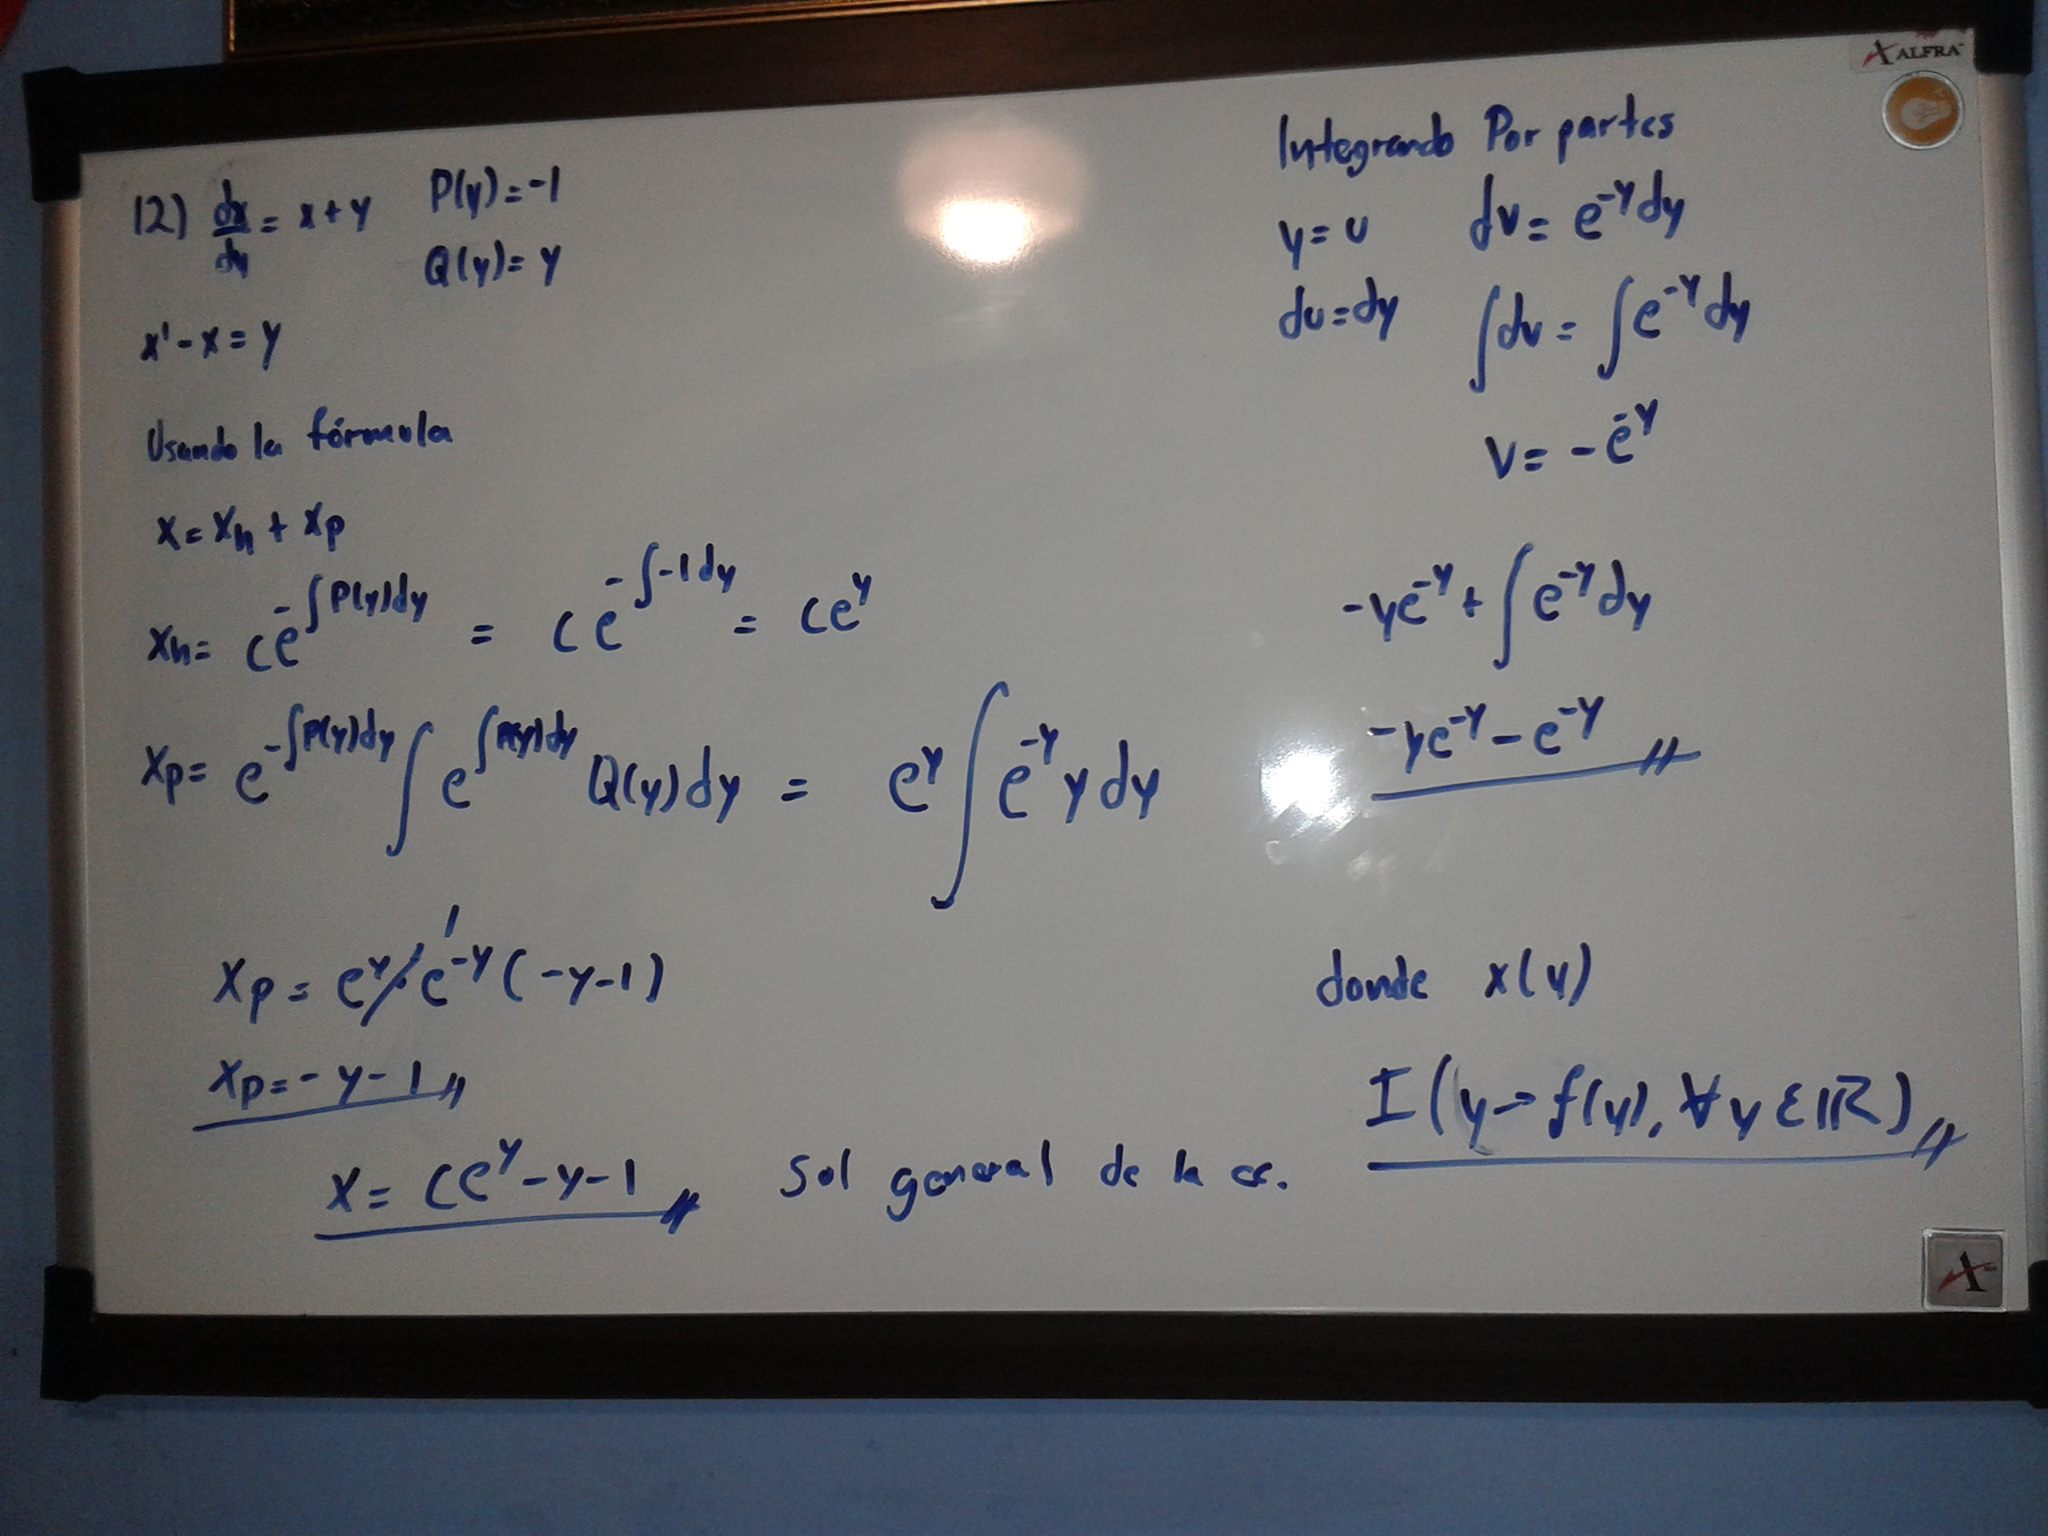 12) dx/dy = x + y P(y) = -1
Q(y) = y
x' - x = y
Usando la fórmula
x = xh + xp
xh = ce^-∫P(y)dy = ce^-∫-1dy = ce^y
xp = e^-∫P(y)dy ∫ e^∫P(y)dy Q(y)dy = e^y ∫ e^-y y dy
xp = e^y · e^-y (-y-1)
1
xp = -y-1 //
x = ce^y - y - 1 // Sol general de la ec.
Integrando Por partes
y = u dv = e^-y dy
du = dy ∫dv = ∫e^-y dy
v = -e^-y
-ye^-y + ∫e^-y dy
-ye^-y - e^-y //
donde x(y)
I(y → f(y), ∀ y ε ℝ) //
ALFRA